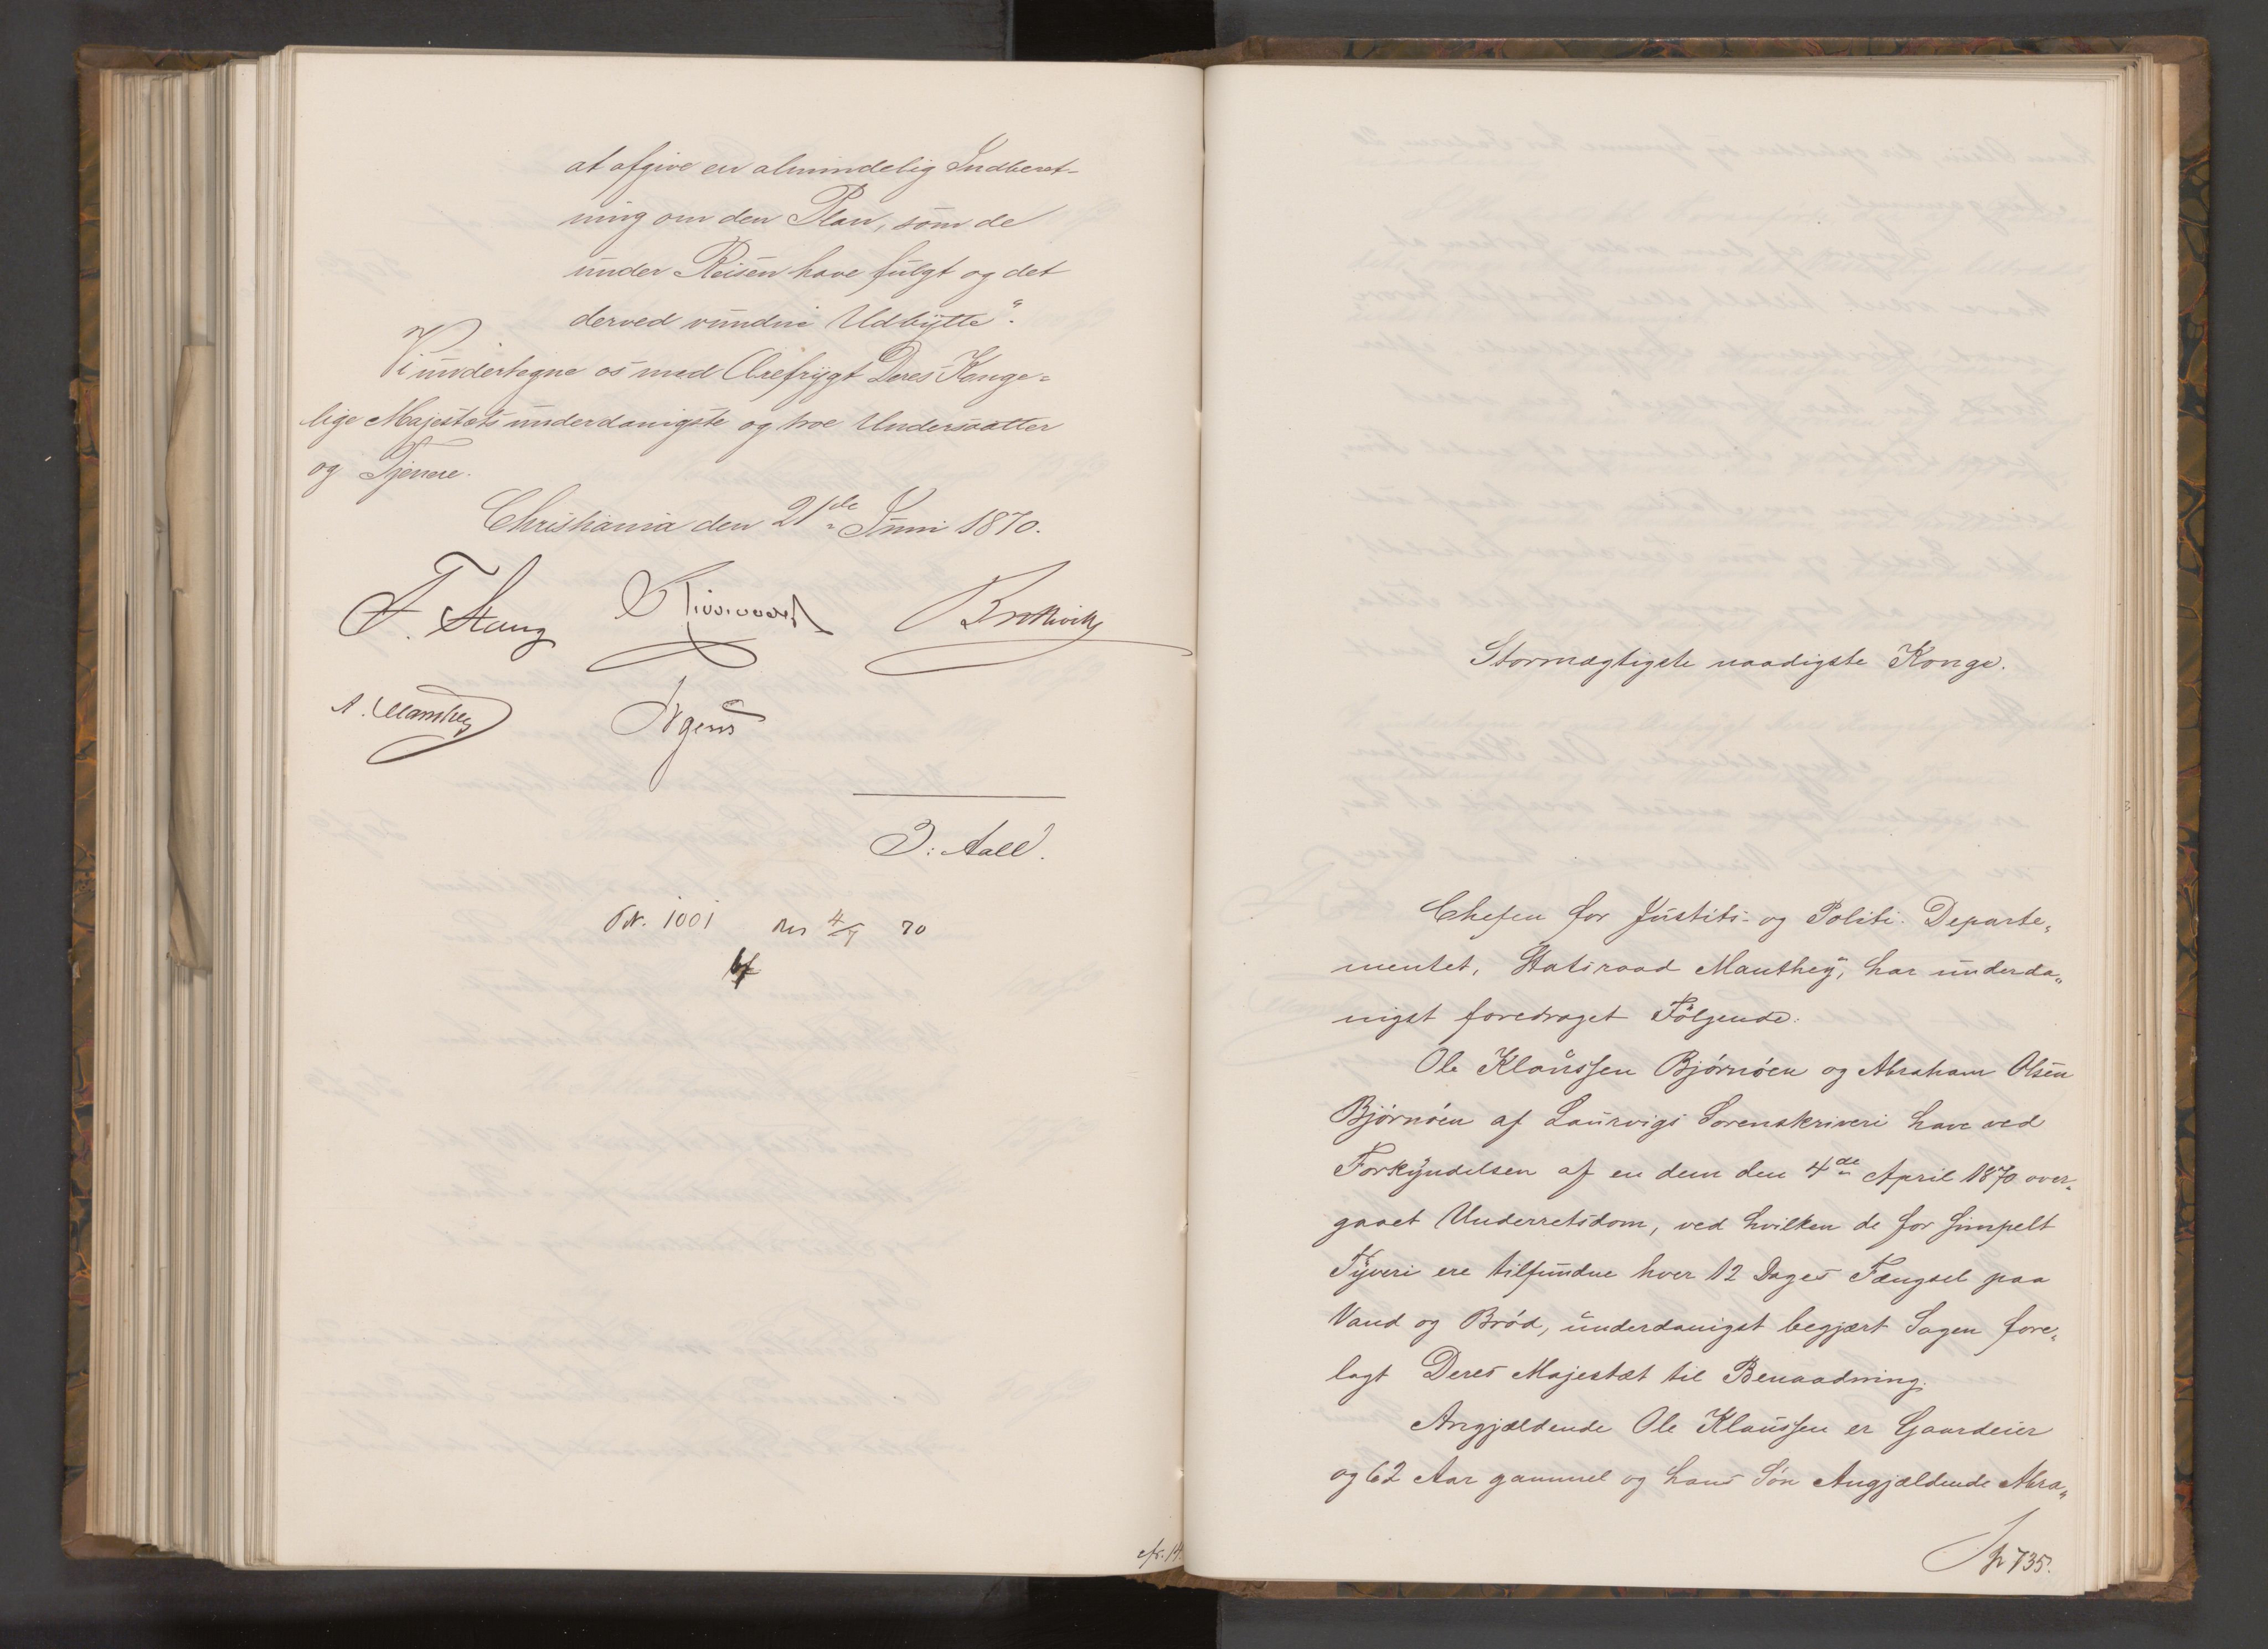 at afgive en almindelig Indberet-
ning om den Plan, som de
under Reisen have fulgt og det
derved vundne Udbytte".
Vi undertegne os med Ærefrygt Deres Konge=
lige Majestæts underdanigste og troe Undersaatter
og Tjenere.
Christiania den 21de Juni 1870.
F. Stang
A. Manthey
Irgens
J. Aall.
N. 1001 Res 4/7 70
cfr. 14
Stormægtigste naadigste Konge.
Chefen for Justits- og Politi-Departe„
mentet, Statsraad Manthey, har underda„
nigst foredraget Følgende:
Ole Klaussen Bjørnøen og Abraham Olsen
Bjørnøen af Laurvigs Sorenskriveri have ved
Forkyndelsen af en dem den 4de April 1870 over„
gaaet Underretsdom, ved hvilken de for simpelt
Tyveri ere tilfundne hver 12 Dages Fængsel paa
Vand og Brød, underdanigst begjært Sagen fore„
lagt Deres Majestæt til Benaadning.
Angjældende Ole Klaussen er Gaardeier
og 62 Aar gammel og hans Søn Angjældende Abra„
735.